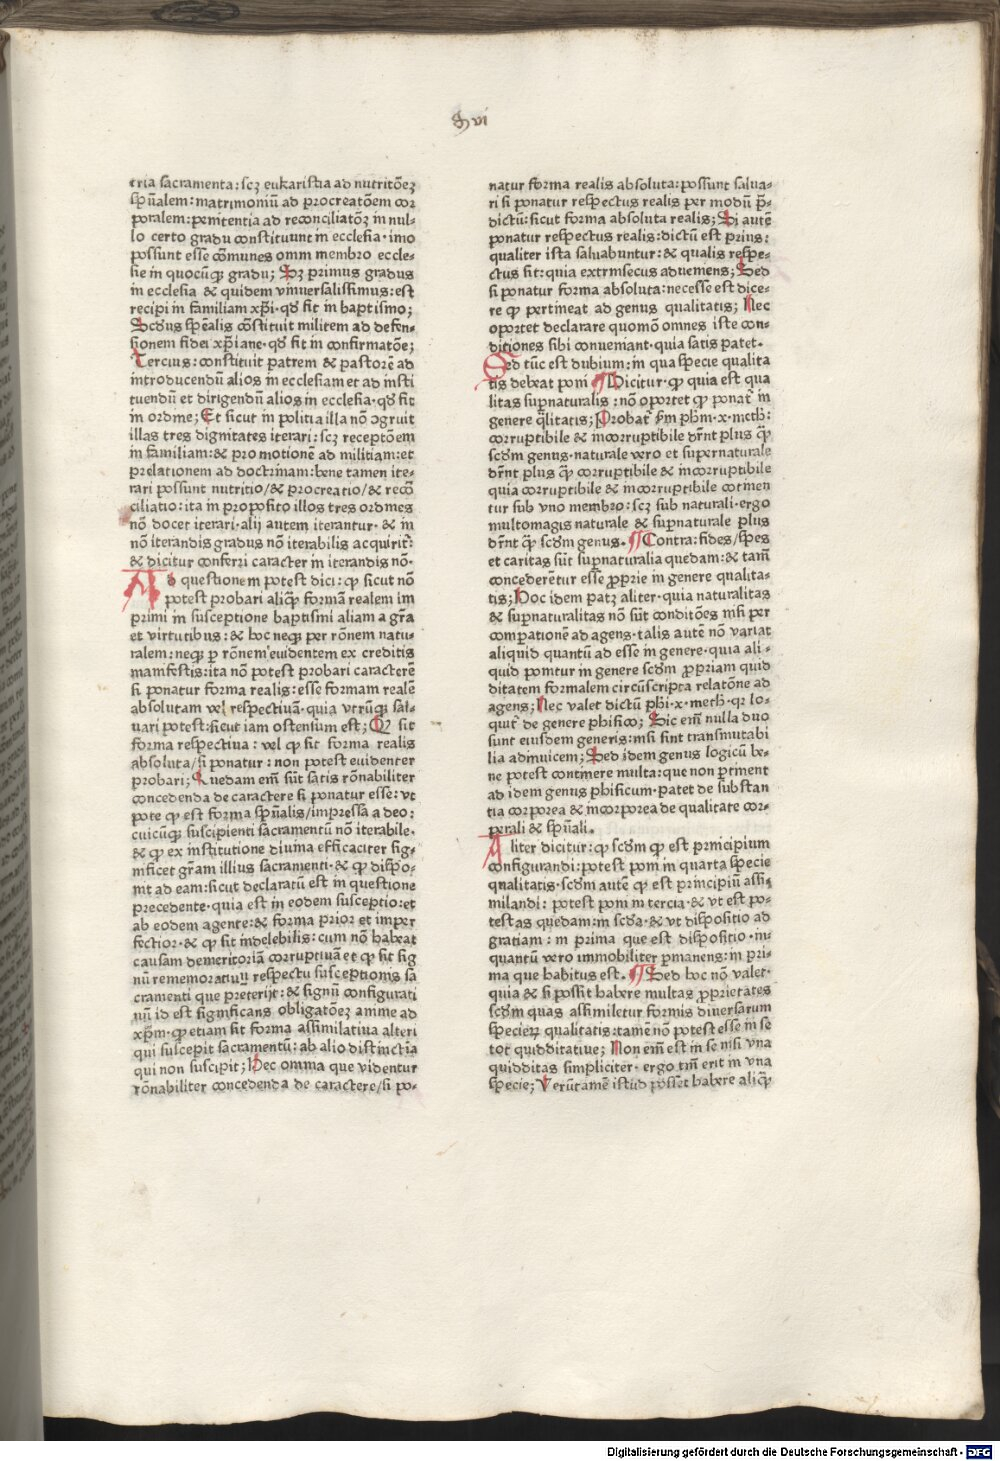 tria sacramenta: scꝫ eukaristia ad nutritōeꝫ
sp̄ualem: matrimoniū ad procreatōem cor
poralem: penitentia ad reconciliatōꝫ in nul-
lo certo gradu constituunt in ecclesia · imo
possunt esse cōmunes omni membro eccle-
sie in quocūqꝫ gradu; Sꝫ primus gradus
in ecclesia & quidem vniuersalissimus: est
recipi in familiam xp̄i · qd̄ fit in baptismo;
Scd̄us sp̄ealis cōstituit militem ad defen-
sionem fidei xp̄iane · qd̄ fit in confirmatōe;
Tercius: constituit patrem & pastorē ad
introducendū alios in ecclesiam et ad insti
tuendū et dirigendū alios in ecclesia · qd̄ fit
in ordine; Et sicut in politia illa nō ɔgruit
illas tres dignitates iterari: scꝫ receptōem
in familiam: & promotionē ad militiam: et
prelationem ad doctrinam: bene tamen ite-
rari possunt nutritio/& procreatio/& recō
ciliatio: ita in proposito illos tres ordines
nō docet iterari · alij autem iterantur · & in
nō iterandis gradus nō iterabilis acquirit̄:
& dicitur conferri caracter in iterandis nō ·
Ad questionem potest dici: ꝙ sicut nō
potest probari aliꝙ̄ formā realem im
primi in susceptione baptismi aliam a gr̄a
et virtutibus: & hoc neqꝫ per rōnem natu-
ralem: neqꝫ ꝑ rōnem euidentem ex creditis
manifestis: ita nō potest probari caracterē
si ponatur forma realis: esse formam realē
absolutam vel respectiuā · quia vtrūqꝫ sal-
uari potest: sicut iam ostensum est; Qꝫ sit
forma respectiua: vel ꝙ sit forma realis
absoluta/si ponatur: non potest euidenter
probari; Quedam em̄ sūt satis rōnabiliter
concedenda de caractere si ponatur esse: vt
pote ꝙ est forma sp̄ualis/impressa a deo:
cuicūqꝫ suscipienti sacramentū nō iterabile ·
& ꝙ ex institutione diuina efficaciter sig-
nificet gr̄am illius sacramenti · & ꝙ dispo-
nit ad eam: sicut declaratū est in questione
precedente · quia est in eodem susceptio: et
ab eodem agente: & forma prior et imper
fectior · & ꝙ sit indelebilis: cum nō habeat
causam demeritoriā corruptiuā et ꝙ sit sig
nū rememoratiuū respectu susceptionis sa
cramenti que preterijt: & signū configurati
uū id est significans obligatōeꝫ anime ad
xp̄m · ꝙ etiam sit forma assimilatiua alteri
qui suscepit sacramentū: ab alio distinctiua
qui non suscipit; Hec omnia que videntur
rōnabiliter concedenda de caractere/si po-
natur forma realis absoluta: possunt salua-
ri si ponatur respectus realis per modū p̄-
dictū: sicut forma absoluta realis; Si autē
ponatur respectus realis: dictū est prius:
qualiter ista saluabuntur: & qualis respe-
ctus sit: quia extrinsecus adueniens; Sed
si ponatur forma absoluta: necesse est dice-
re ꝙ pertineat ad genus qualitatis; Nec
oportet declarare quomō omnes iste con-
ditiones sibi conueniant · quia satis patet ·
Sed tūc est dubium: in qua specie qualita
tis debeat poni ¶ Dicitur · ꝙ quia est qua
litas sup̄naturalis: nō oportet ꝙ ponat̄ in
genere q̄litatis; Probat̄ p̄m ph̄m · x · meth̄:
corruptibile & incorruptibile dr̄nt plus ꝙ̄
scd̄m genus · naturale vero et supernaturale
dr̄nt plus ꝙ̄ corruptibile & incorruptibile
quia corruptibile & incorruptibile cōtinen
tur sub vno membro: scꝫ sub naturali · ergo
multomagis naturale & sup̄naturale plus
dr̄nt ꝙ̄ scd̄m genus · ¶ Contra: fides/spes
et caritas sūt sup̄naturalia quedam: & tam̄
concederētur esse ꝓprie in genere qualita-
tis; Hoc idem patꝫ aliter · quia naturalitas
& sup̄naturalitas nō sūt conditōes nisi per
comparationē ad agens · talis autē nō variat
aliquid quantū ad esse in genere · quia ali-
quid ponitur in genere scd̄m ꝓpriam quid
ditatem formalem circūscripta relatōne ad
agens; Nec valet dictū ph̄i · x · meth̄ · qꝛ lo-
quit̄ de genere phisico; Sic em̄ nulla duo
sunt eiusdem generis: nisi sint transmutabi
lia adinuicem; Sed idem genus logicū be-
ne potest continere multa: que non ꝑtinent
ad idem genus phisicum · patet de substan
tia corporea & incorporea de qualitate cor-
porali & sp̄uali ·
Aliter dicitur: ꝙ scd̄m ꝙ est principium
configurandi: potest poni in quarta specie
qualitatis · scd̄m autē ꝙ est principiū assi-
milandi: potest poni in tercia · & vt est po-
testas quedam: in scd̄a · & vt dispositio ad
gratiam: in prima que est dispositio · in-
quantū vero immobiliter permanens: in pri-
ma que habitus est · ¶ Sed hoc nō valet ·
quia & si possit habere multas ꝓprietates
scd̄m quas assimiletur formis diuersarum
specierꝫ qualitatis: tamē nō potest esse in se
tot quidditatiue; Non em̄ est in se nisi vna
quidditas simpliciter · ergo tm̄ erit in vna
specie; Verūtamē istud posset habere aliꝙ̄
Digitalisierung gefördert durch die Deutsche Forschungsgemeinschaft - DFG